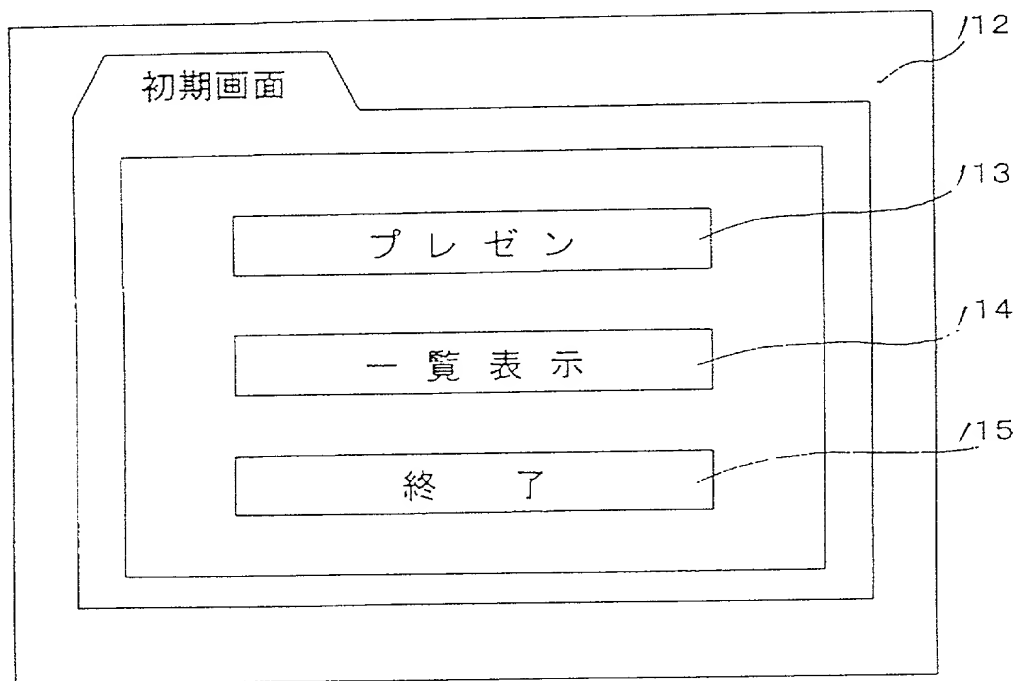 初期画面
12
プレゼン
13
一覧表示
14
終了
15